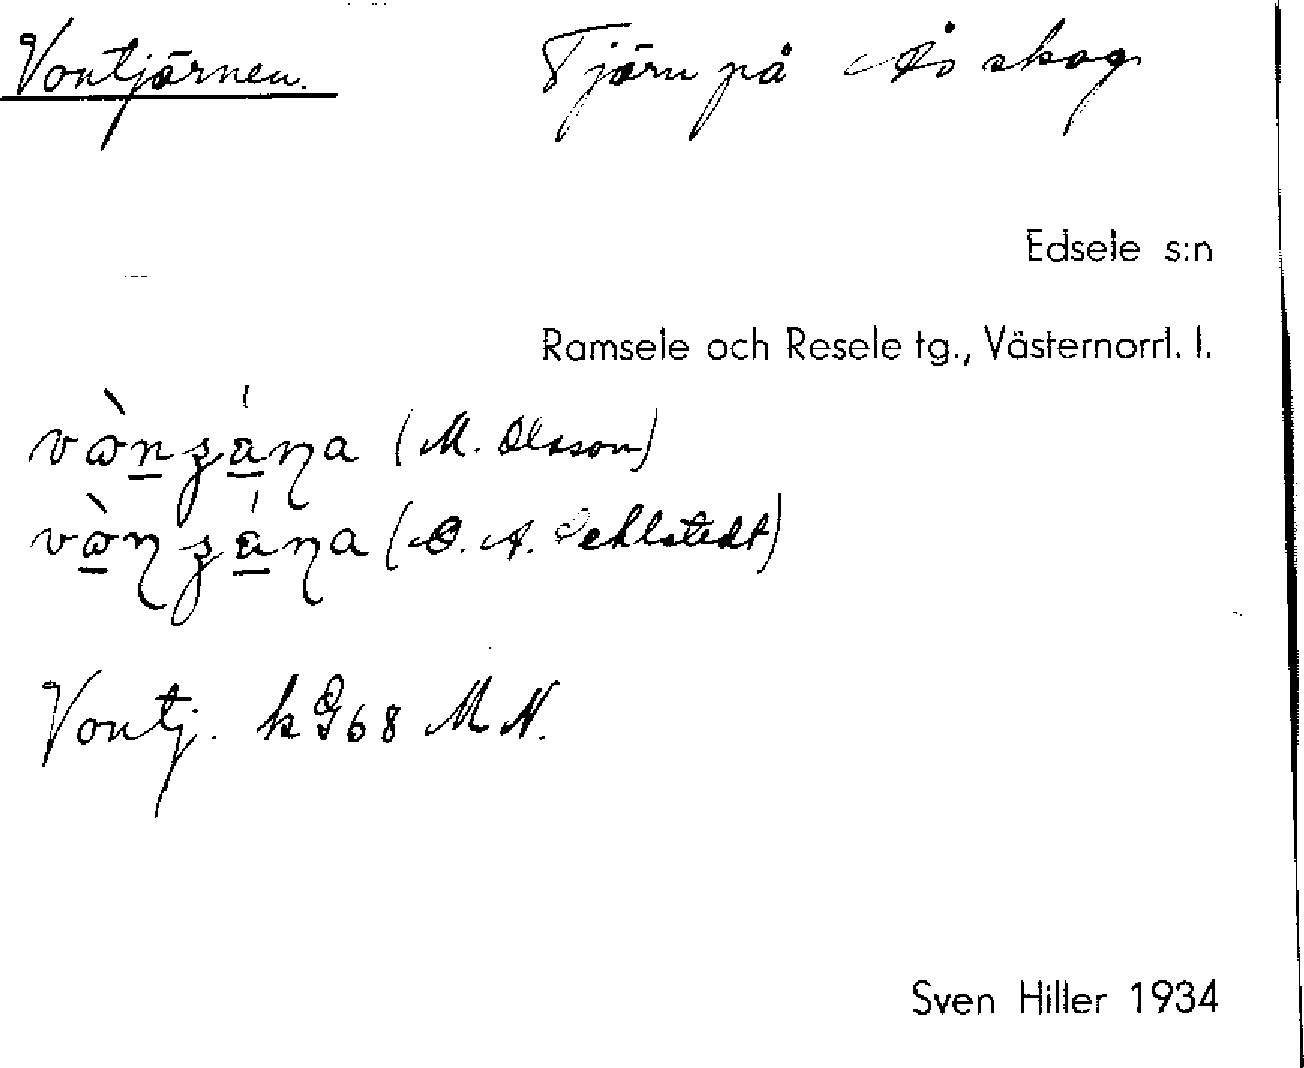 Vontjärnen. Tjärn på Ås skog
Edsele s:n
Ramsele och Resele tg., Västernorrl. l.
(M. Olsson)
(O. A. Sehlstedt)
Vontj. k G68 M N.
Sven Hiller 1934